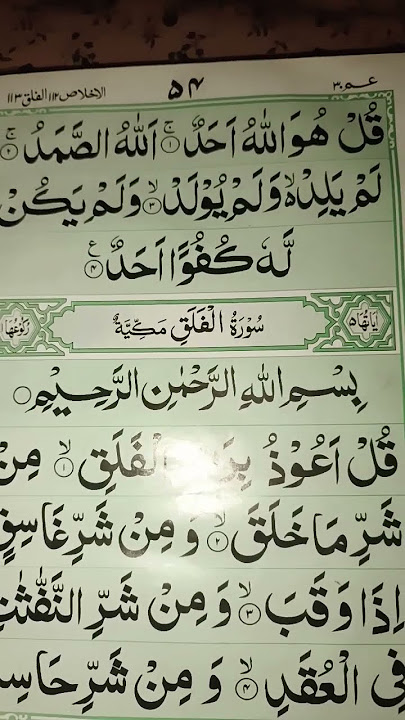 الاخلاص ١١٢ الفلق ١١٣ ۵۴ عـم ٣٠
قُلْ هُوَ اللّٰهُ اَحَدٌ ۚ﴿۱﴾ اَللّٰهُ الصَّمَدُ ۚ﴿۲﴾
لَمْ يَلِدْ ۙ وَلَمْ يُوْلَدْ ۙ﴿۳﴾ وَلَمْ يَكُنْ
لَّهٗ كُفُوًا اَحَدٌ ﴿۴﴾ ع
اٰيَاتُهَا ۵ سُوْرَةُ الْفَلَقِ مَكِّيَّةٌ رُكُوْعُهَا
بِسْمِ اللّٰهِ الرَّحْمٰنِ الرَّحِيْمِ
قُلْ اَعُوْذُ الْفَلَقِ ۙ﴿۱﴾ مِنْ
شَرِّ مَا خَلَقَ ۙ﴿۲﴾ وَ مِنْ شَرِّ غَاسِقٍ
اِذَا وَقَبَ ۙ﴿۳﴾ وَ مِنْ شَرِّ النَّفّٰثٰتِ
فِي الْعُقَدِ ۙ﴿۴﴾ وَ مِنْ شَرِّ حَاسِ